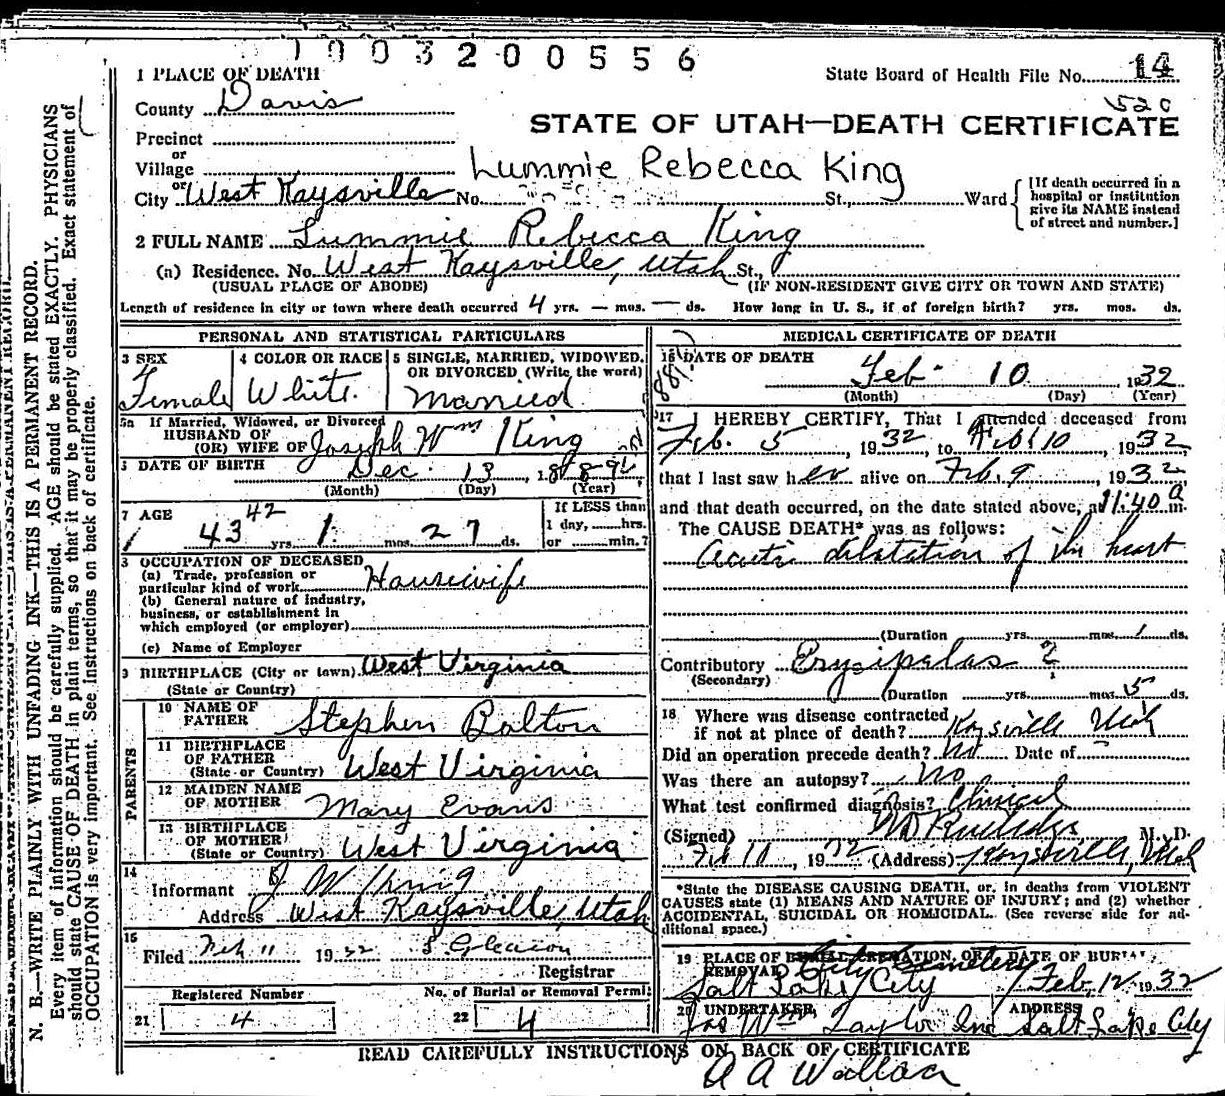 1003200556
1 PLACE OF DEATH
State Board of Health File No. 14
County Davis
520
STATE OF UTAH—DEATH CERTIFICATE
Precinct
or
Village
Lummie Rebecca King
City or West Kaysville No. St., Ward
[If death occurred in a hospital or institution give its NAME instead of street and number.]
2 FULL NAME Lummie Rebecca King
(a) Residence. No. West Kaysville, Utah St.,
(USUAL PLACE OF ABODE) (IF NON-RESIDENT GIVE CITY OR TOWN AND STATE)
Length of residence in city or town where death occurred 4 yrs. — mos. — ds. How long in U. S., if of foreign birth? yrs. mos. ds.
PERSONAL AND STATISTICAL PARTICULARS
3 SEX 4 COLOR OR RACE 5 SINGLE, MARRIED, WIDOWED, OR DIVORCED (Write the word)
Female White Married
5a If Married, Widowed, or Divorced
HUSBAND OF
(OR) WIFE OF Joseph Wm King
DATE OF BIRTH Dec. 13
(Month) (Day) (Year)
7 AGE 42
43 yrs. 1 mos. 27 ds.
If LESS than
1 day, hrs.
or min.?
OCCUPATION OF DECEASED
(a) Trade, profession or
particular kind of work Housewife
(b) General nature of industry,
business, or establishment in
which employed (or employer)
(c) Name of Employer
9 BIRTHPLACE (City or town) West Virginia
(State or Country)
PARENTS
10 NAME OF
FATHER Stephen Bolton
11 BIRTHPLACE
OF FATHER
(State or Country) West Virginia
12 MAIDEN NAME
OF MOTHER Mary Evans
13 BIRTHPLACE
OF MOTHER
(State or Country) West Virginia
14
Informant J W King
Address West Kaysville, Utah
15
Filed Feb 11 1932 S Gleason
Registrar
Registered Number No. of Burial or Removal Permit
21 4 22 4
MEDICAL CERTIFICATE OF DEATH
16 DATE OF DEATH
Feb. 10 1932
(Month) (Day) (Year)
17 I HEREBY CERTIFY, That I attended deceased from
Feb. 5, 1932, to Feb 10, 1932,
that I last saw her alive on Feb. 9, 1932
and that death occurred, on the date stated above, at 11:40 a m.
The CAUSE DEATH* was as follows:
Acute dilatation of the heart
(Duration yrs. mos. 1 ds.
Contributory Erysipelas ?
(Secondary)
(Duration yrs. mos. 5 ds.
18 Where was disease contracted
if not at place of death? Kaysville Utah
Did an operation precede death? No Date of —
Was there an autopsy? No
What test confirmed diagnosis? Clinical
(Signed) Rutledge M. D.
Feb 10, 1932 (Address) Kaysville, Utah
*State the DISEASE CAUSING DEATH, or, in deaths from VIOLENT
CAUSES state (1) MEANS AND NATURE OF INJURY; and (2) whether
ACCIDENTAL, SUICIDAL OR HOMICIDAL. (See reverse side for ad-
ditional space.)
19 PLACE OF BURIAL, CREMATION, OR DATE OF BURIAL
REMOVAL City Cemetery
Salt Lake City Feb, 12 1932
20 UNDERTAKER, ADDRESS
Jos Wm Taylor Inc Salt Lake City
READ CAREFULLY INSTRUCTIONS ON BACK OF CERTIFICATE
N. B.—WRITE PLAINLY WITH UNFADING INK—THIS IS A PERMANENT RECORD.
Every item of information should be carefully supplied. AGE should be stated EXACTLY. PHYSICIANS
should state CAUSE OF DEATH in plain terms, so that it may be properly classified. Exact statement of
OCCUPATION is very important. See instructions on back of certificate.